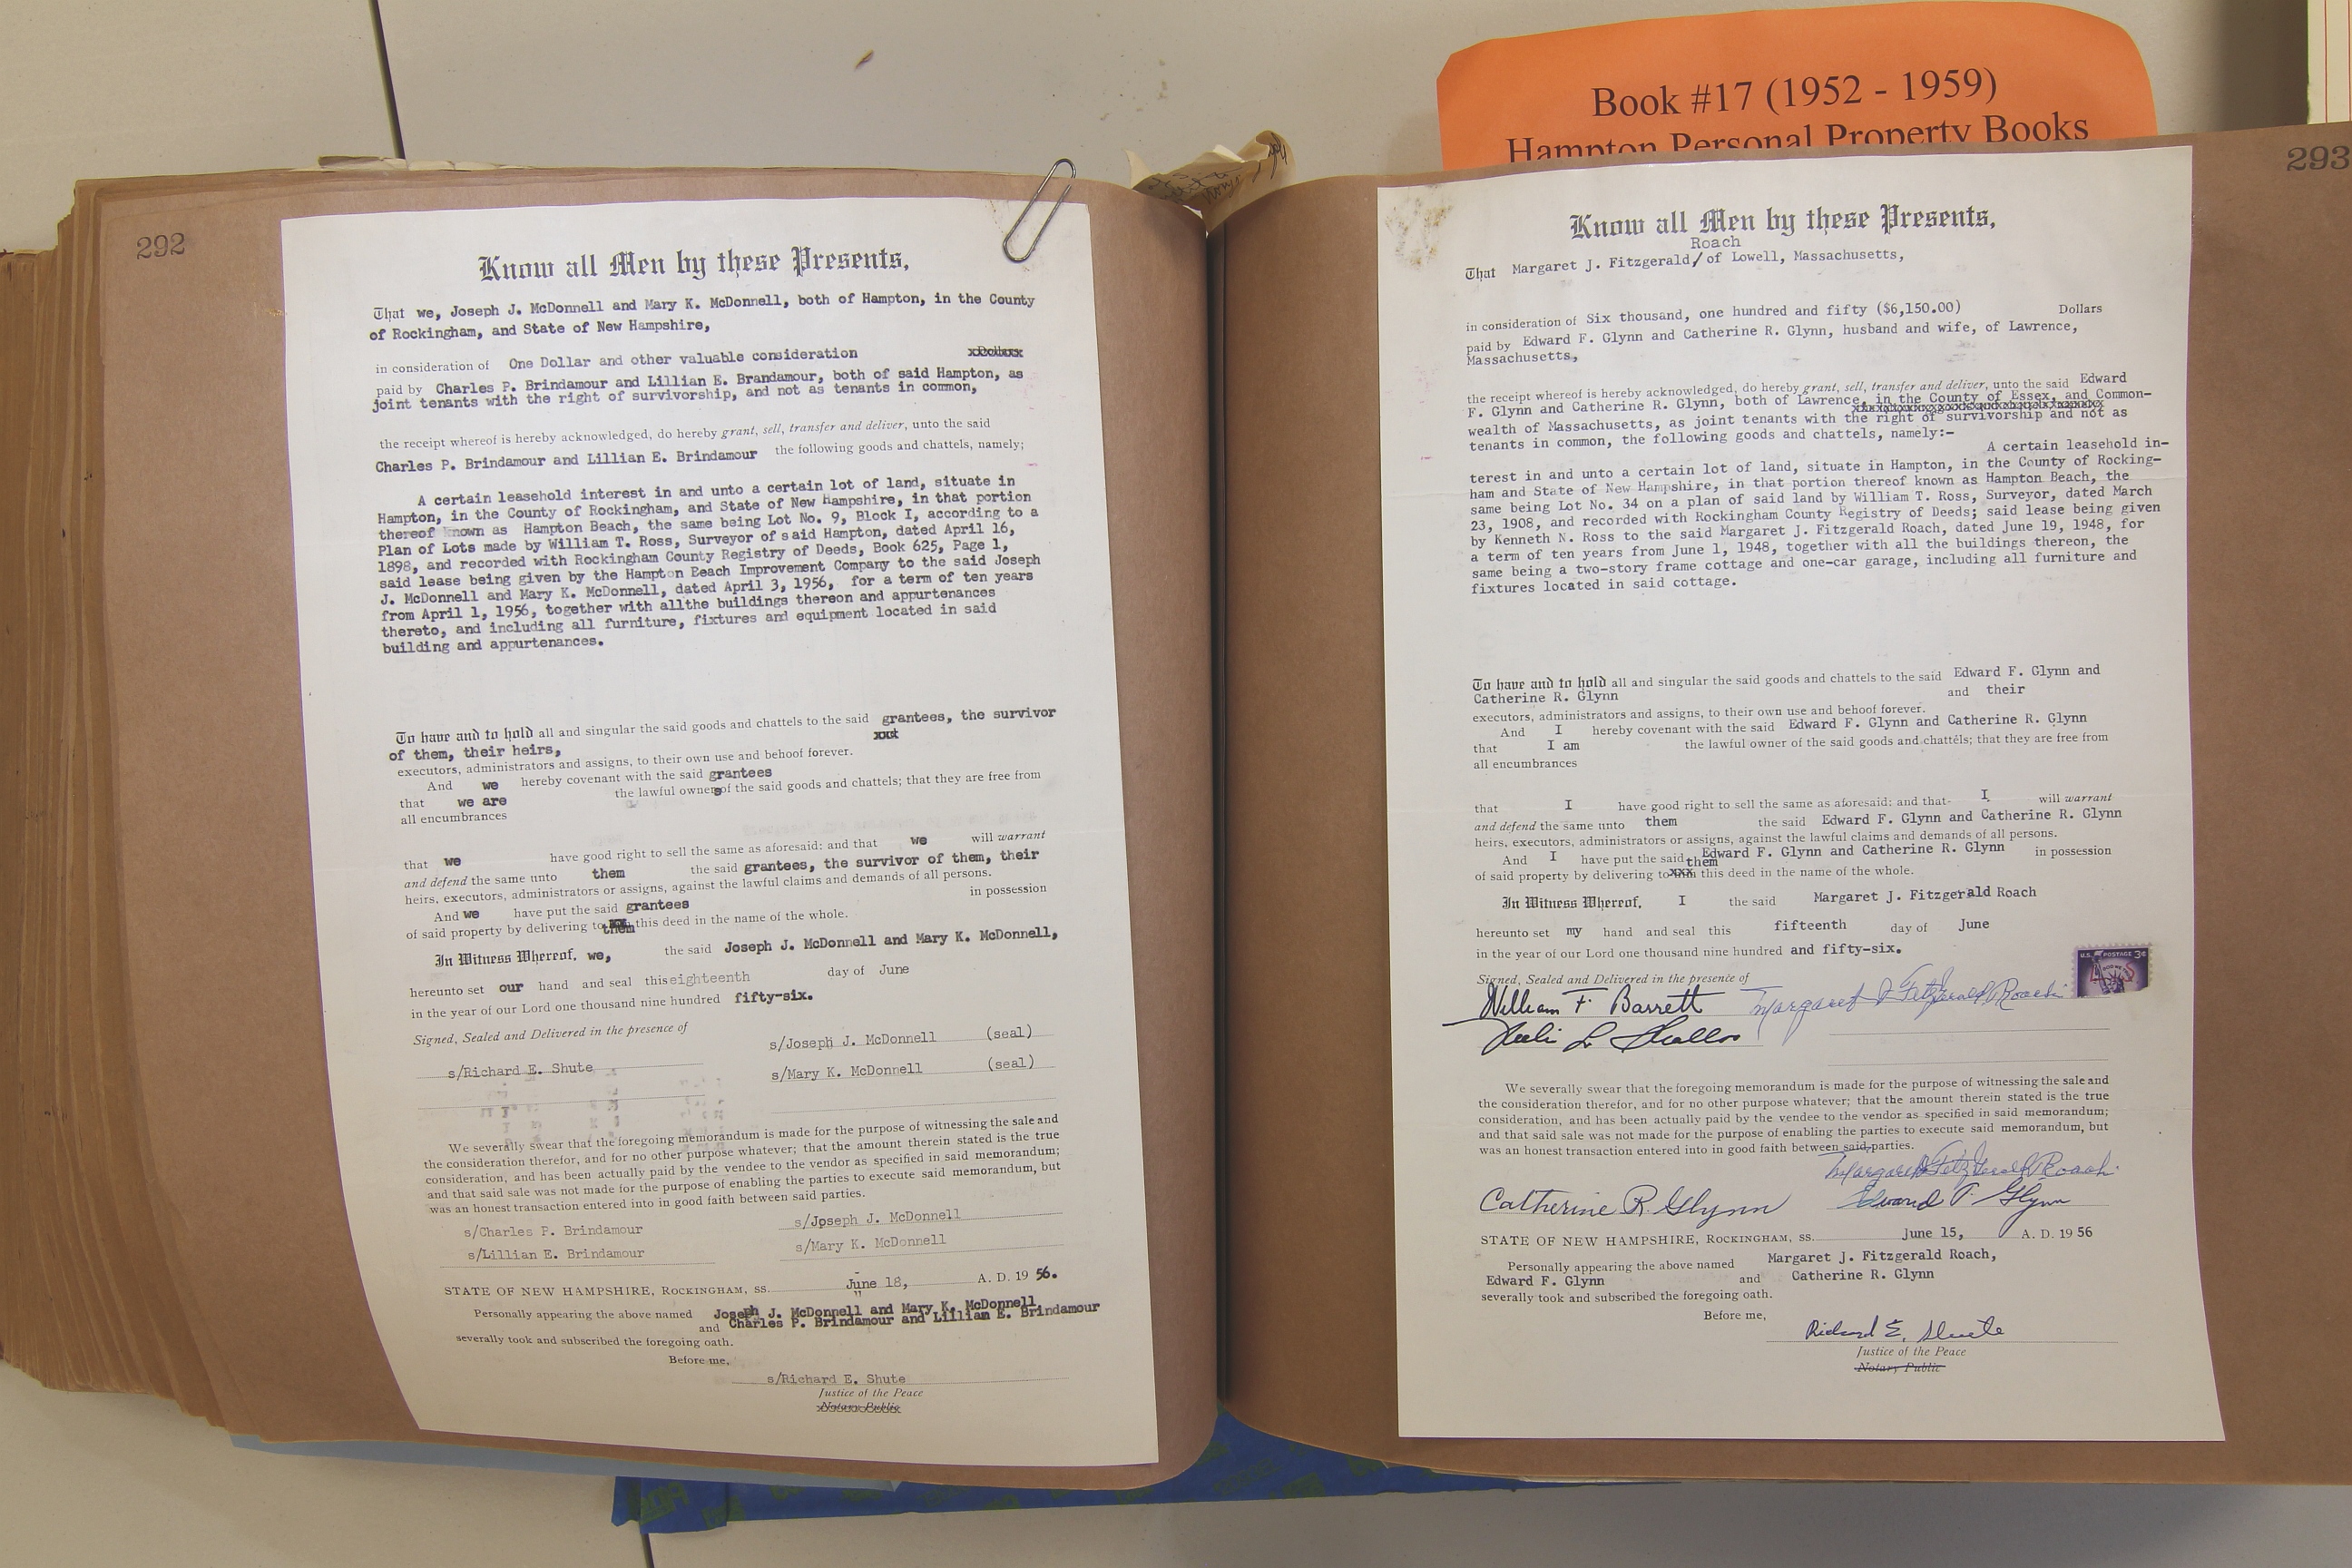 Book #17 (1952 - 1959)
Hampton Personal Property Books
292
Know all Men by these Presents,
That we, Joseph J. McDonnell and Mary K. McDonnell, both of Hampton, in the County
of Rockingham, and State of New Hampshire,
in consideration of One Dollar and other valuable consideration
paid by Charles P. Brindamour and Lillian E. Brandamour, both of said Hampton, as
joint tenants with the right of survivorship, and not as tenants in common,
the receipt whereof is hereby acknowledged, do hereby grant, sell, transfer and deliver, unto the said
Charles P. Brindamour and Lillian E. Brindamour the following goods and chattels, namely;
A certain leasehold interest in and unto a certain lot of land, situate in
Hampton, in the County of Rockingham, and State of New Hampshire, in that portion
thereof known as Hampton Beach, the same being Lot No. 9, Block I, according to a
Plan of Lots made by William T. Ross, Surveyor of said Hampton, dated April 16,
1898, and recorded with Rockingham County Registry of Deeds, Book 625, Page 1,
said lease being given by the Hampton Beach Improvement Company to the said Joseph
J. McDonnell and Mary K. McDonnell, dated April 3, 1956, for a term of ten years
from April 1, 1956, together with allthe buildings thereon and appurtenances
thereto, and including all furniture, fixtures and equipment located in said
building and appurtenances.
To have and to hold all and singular the said goods and chattels to the said grantees, the survivor
of them, their heirs,
executors, administrators and assigns, to their own use and behoof forever.
And we hereby covenant with the said grantees
that we are the lawful owners of the said goods and chattels; that they are free from
all encumbrances
that we have good right to sell the same as aforesaid: and that we will warrant
and defend the same unto them the said grantees, the survivor of them, their
heirs, executors, administrators or assigns, against the lawful claims and demands of all persons.
And we have put the said grantees in possession
of said property by delivering to them this deed in the name of the whole.
In Witness Whereof, we, the said Joseph J. McDonnell and Mary K. McDonnell,
hereunto set our hand and seal this eighteenth day of June
in the year of our Lord one thousand nine hundred fifty-six.
Signed, Sealed and Delivered in the presence of
s/Joseph J. McDonnell (seal)
s/Richard E. Shute
s/Mary K. McDonnell (seal)
We severally swear that the foregoing memorandum is made for the purpose of witnessing the sale and
the consideration therefor, and for no other purpose whatever; that the amount therein stated is the true
consideration, and has been actually paid by the vendee to the vendor as specified in said memorandum;
and that said sale was not made for the purpose of enabling the parties to execute said memorandum, but
was an honest transaction entered into in good faith between said parties.
s/Charles P. Brindamour s/Joseph J. McDonnell
s/Lillian E. Brindamour s/Mary K. McDonnell
STATE OF NEW HAMPSHIRE, ROCKINGHAM, SS. June 18, A. D. 19 56.
Personally appearing the above named Joseph J. McDonnell and Mary K. McDonnell
and Charles P. Brindamour and Lilliam E. Brindamour
severally took and subscribed the foregoing oath.
Before me,
s/Richard E. Shute
Justice of the Peace
Notary Public
293
Know all Men by these Presents,
Roach
That Margaret J. Fitzgerald/ of Lowell, Massachusetts,
in consideration of Six thousand, one hundred and fifty ($6,150.00) Dollars
paid by Edward F. Glynn and Catherine R. Glynn, husband and wife, of Lawrence,
Massachusetts,
the receipt whereof is hereby acknowledged, do hereby grant, sell, transfer and deliver, unto the said Edward
F. Glynn and Catherine R. Glynn, both of Lawrence, in the County of Essex, and Common-
wealth of Massachusetts, as joint tenants with the right of survivorship and not as
tenants in common, the following goods and chattels, namely:-
A certain leasehold in-
terest in and unto a certain lot of land, situate in Hampton, in the County of Rocking-
ham and State of New Hampshire, in that portion thereof known as Hampton Beach, the
same being Lot No. 34 on a plan of said land by William T. Ross, Surveyor, dated March
23, 1908, and recorded with Rockingham County Registry of Deeds; said lease being given
by Kenneth N. Ross to the said Margaret J. Fitzgerald Roach, dated June 19, 1948, for
a term of ten years from June 1, 1948, together with all the buildings thereon, the
same being a two-story frame cottage and one-car garage, including all furniture and
fixtures located in said cottage.
To have and to hold all and singular the said goods and chattels to the said Edward F. Glynn and
Catherine R. Glynn and their
executors, administrators and assigns, to their own use and behoof forever.
And I hereby covenant with the said Edward F. Glynn and Catherine R. Glynn
that I am the lawful owner of the said goods and chattels; that they are free from
all encumbrances
that I have good right to sell the same as aforesaid: and that I will warrant
and defend the same unto them the said Edward F. Glynn and Catherine R. Glynn
heirs, executors, administrators or assigns, against the lawful claims and demands of all persons.
And I have put the said Edward F. Glynn and Catherine R. Glynn in possession
of said property by delivering to them this deed in the name of the whole.
In Witness Whereof, I the said Margaret J. Fitzgerald Roach
hereunto set my hand and seal this fifteenth day of June
in the year of our Lord one thousand nine hundred and fifty-six.
Signed, Sealed and Delivered in the presence of
U.S. POSTAGE 3¢
William F. Barrett Margaret J Fitzgerald Roach
We severally swear that the foregoing memorandum is made for the purpose of witnessing the sale and
the consideration therefor, and for no other purpose whatever; that the amount therein stated is the true
consideration, and has been actually paid by the vendee to the vendor as specified in said memorandum;
and that said sale was not made for the purpose of enabling the parties to execute said memorandum, but
was an honest transaction entered into in good faith between said parties.
Margaret J Fitzgerald Roach
Catherine R. Glynn Edward F. Glynn
STATE OF NEW HAMPSHIRE, ROCKINGHAM, SS. June 15, A. D. 19 56
Personally appearing the above named Margaret J. Fitzgerald Roach,
Edward F. Glynn and Catherine R. Glynn
severally took and subscribed the foregoing oath.
Before me,
Richard E. Shute
Justice of the Peace
Notary Public